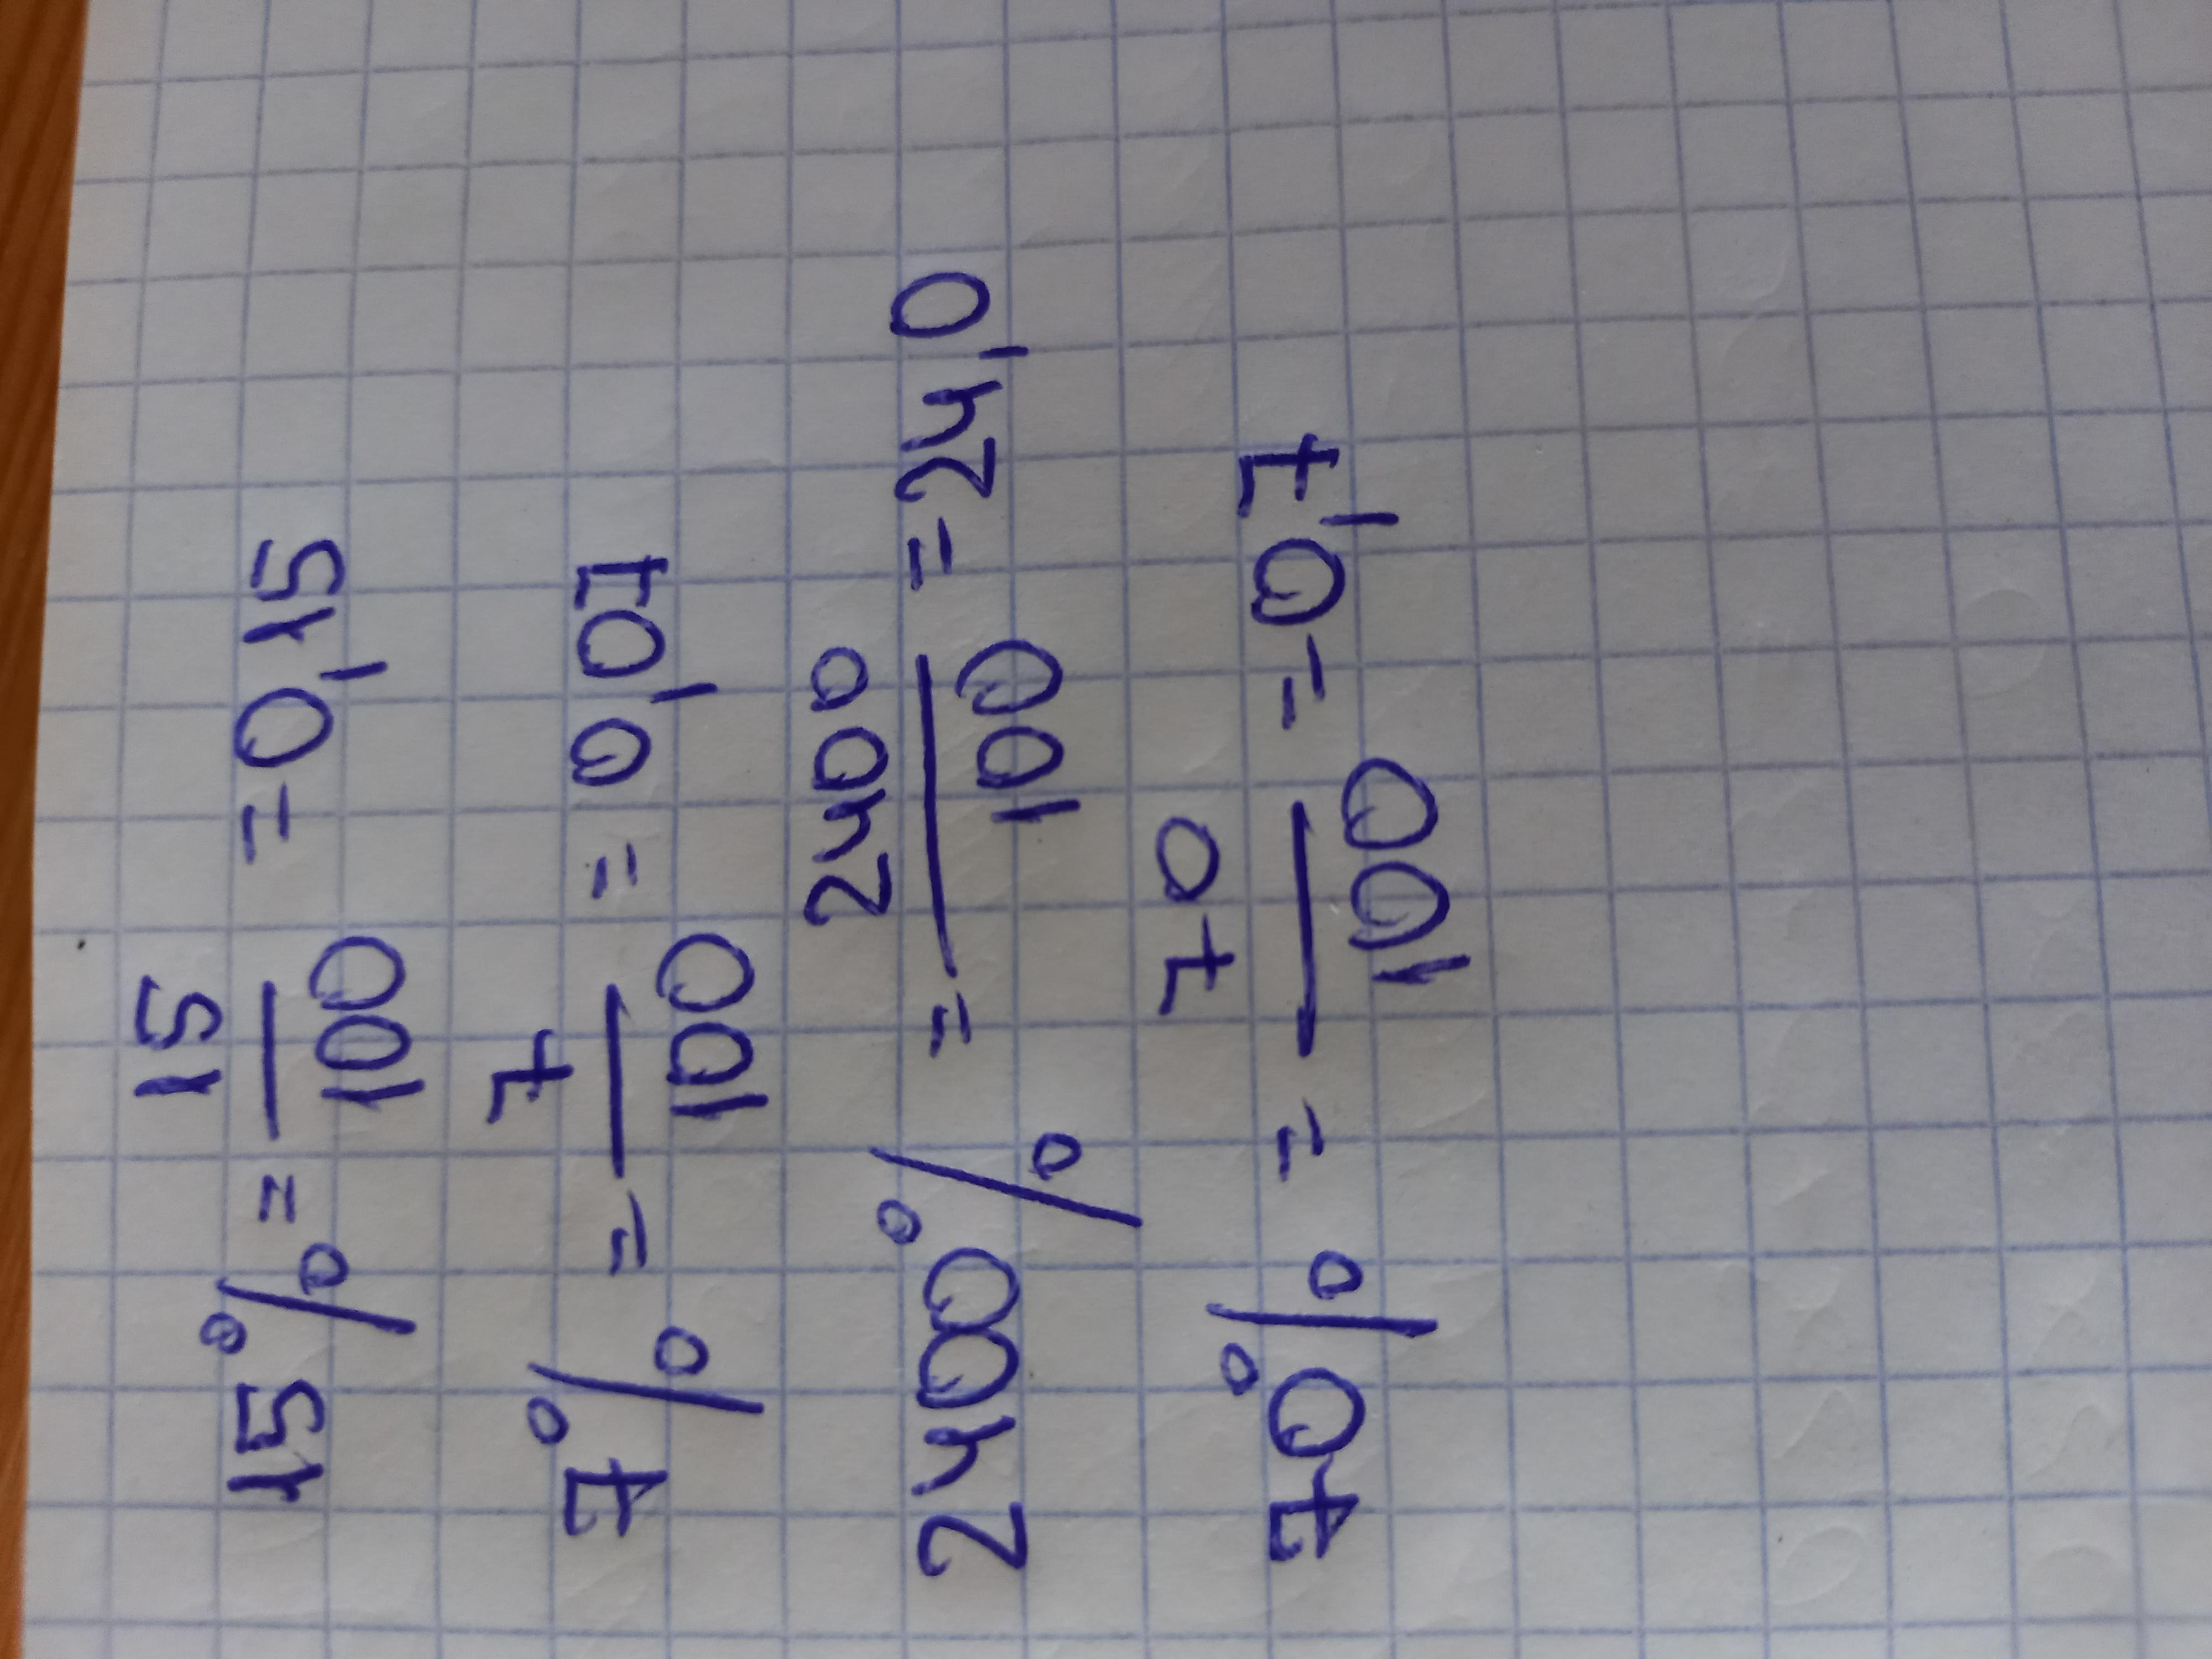 15% = 15/100 = 0,15
7% = 7/100 = 0,07
2400% = 2400/100 = 24,0
70% = 70/100 = 0,7